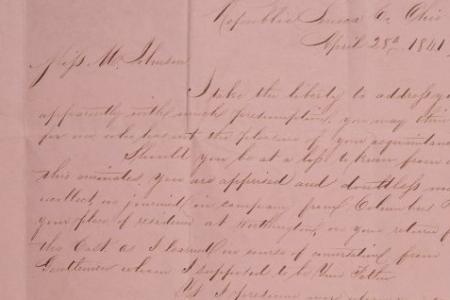 Republic Seneca Co, Ohio
April 28th 1841
Miss M. Johnson
I take the liberty to address yo
apparently with much presumption you may think
for one who has not the pleasure of your acquaintanc
Should you be at a loss to know from w
this eminates, you are apprised and doubtless
recollect, we journied in company from Columbus
your place of residence at Worthington, on your return f
the East as I learned in course of conversation from
Gentleman whom I supposed to be Your Father
I presume